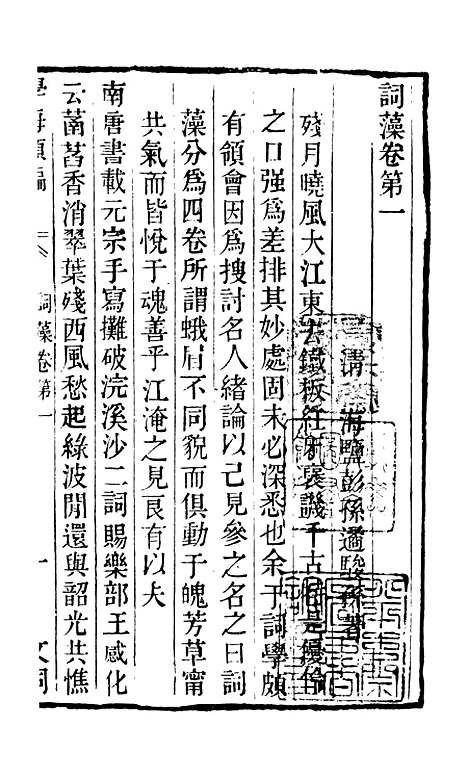 詞藻卷第一
清 海鹽彭孫遹駿孫著
殘月曉風大江東去鐵板紅牙褒譏千古
之口强爲差排其妙處固未必深悉也余于詞學頗
有領會因爲搜討名人緒論以己見參之名之曰詞
藻分爲四卷所謂蛾眉不同貌而俱動于魄芳草甯
共氣而皆悅于魂善乎江淹之見良有以夫
南唐書載元宗手寫攤破浣溪沙二詞賜樂部王感化
云菡萏香消翠葉殘西風愁起綠波閒還與韶光共憔
學海類編 詞藻卷第一 一 文詞